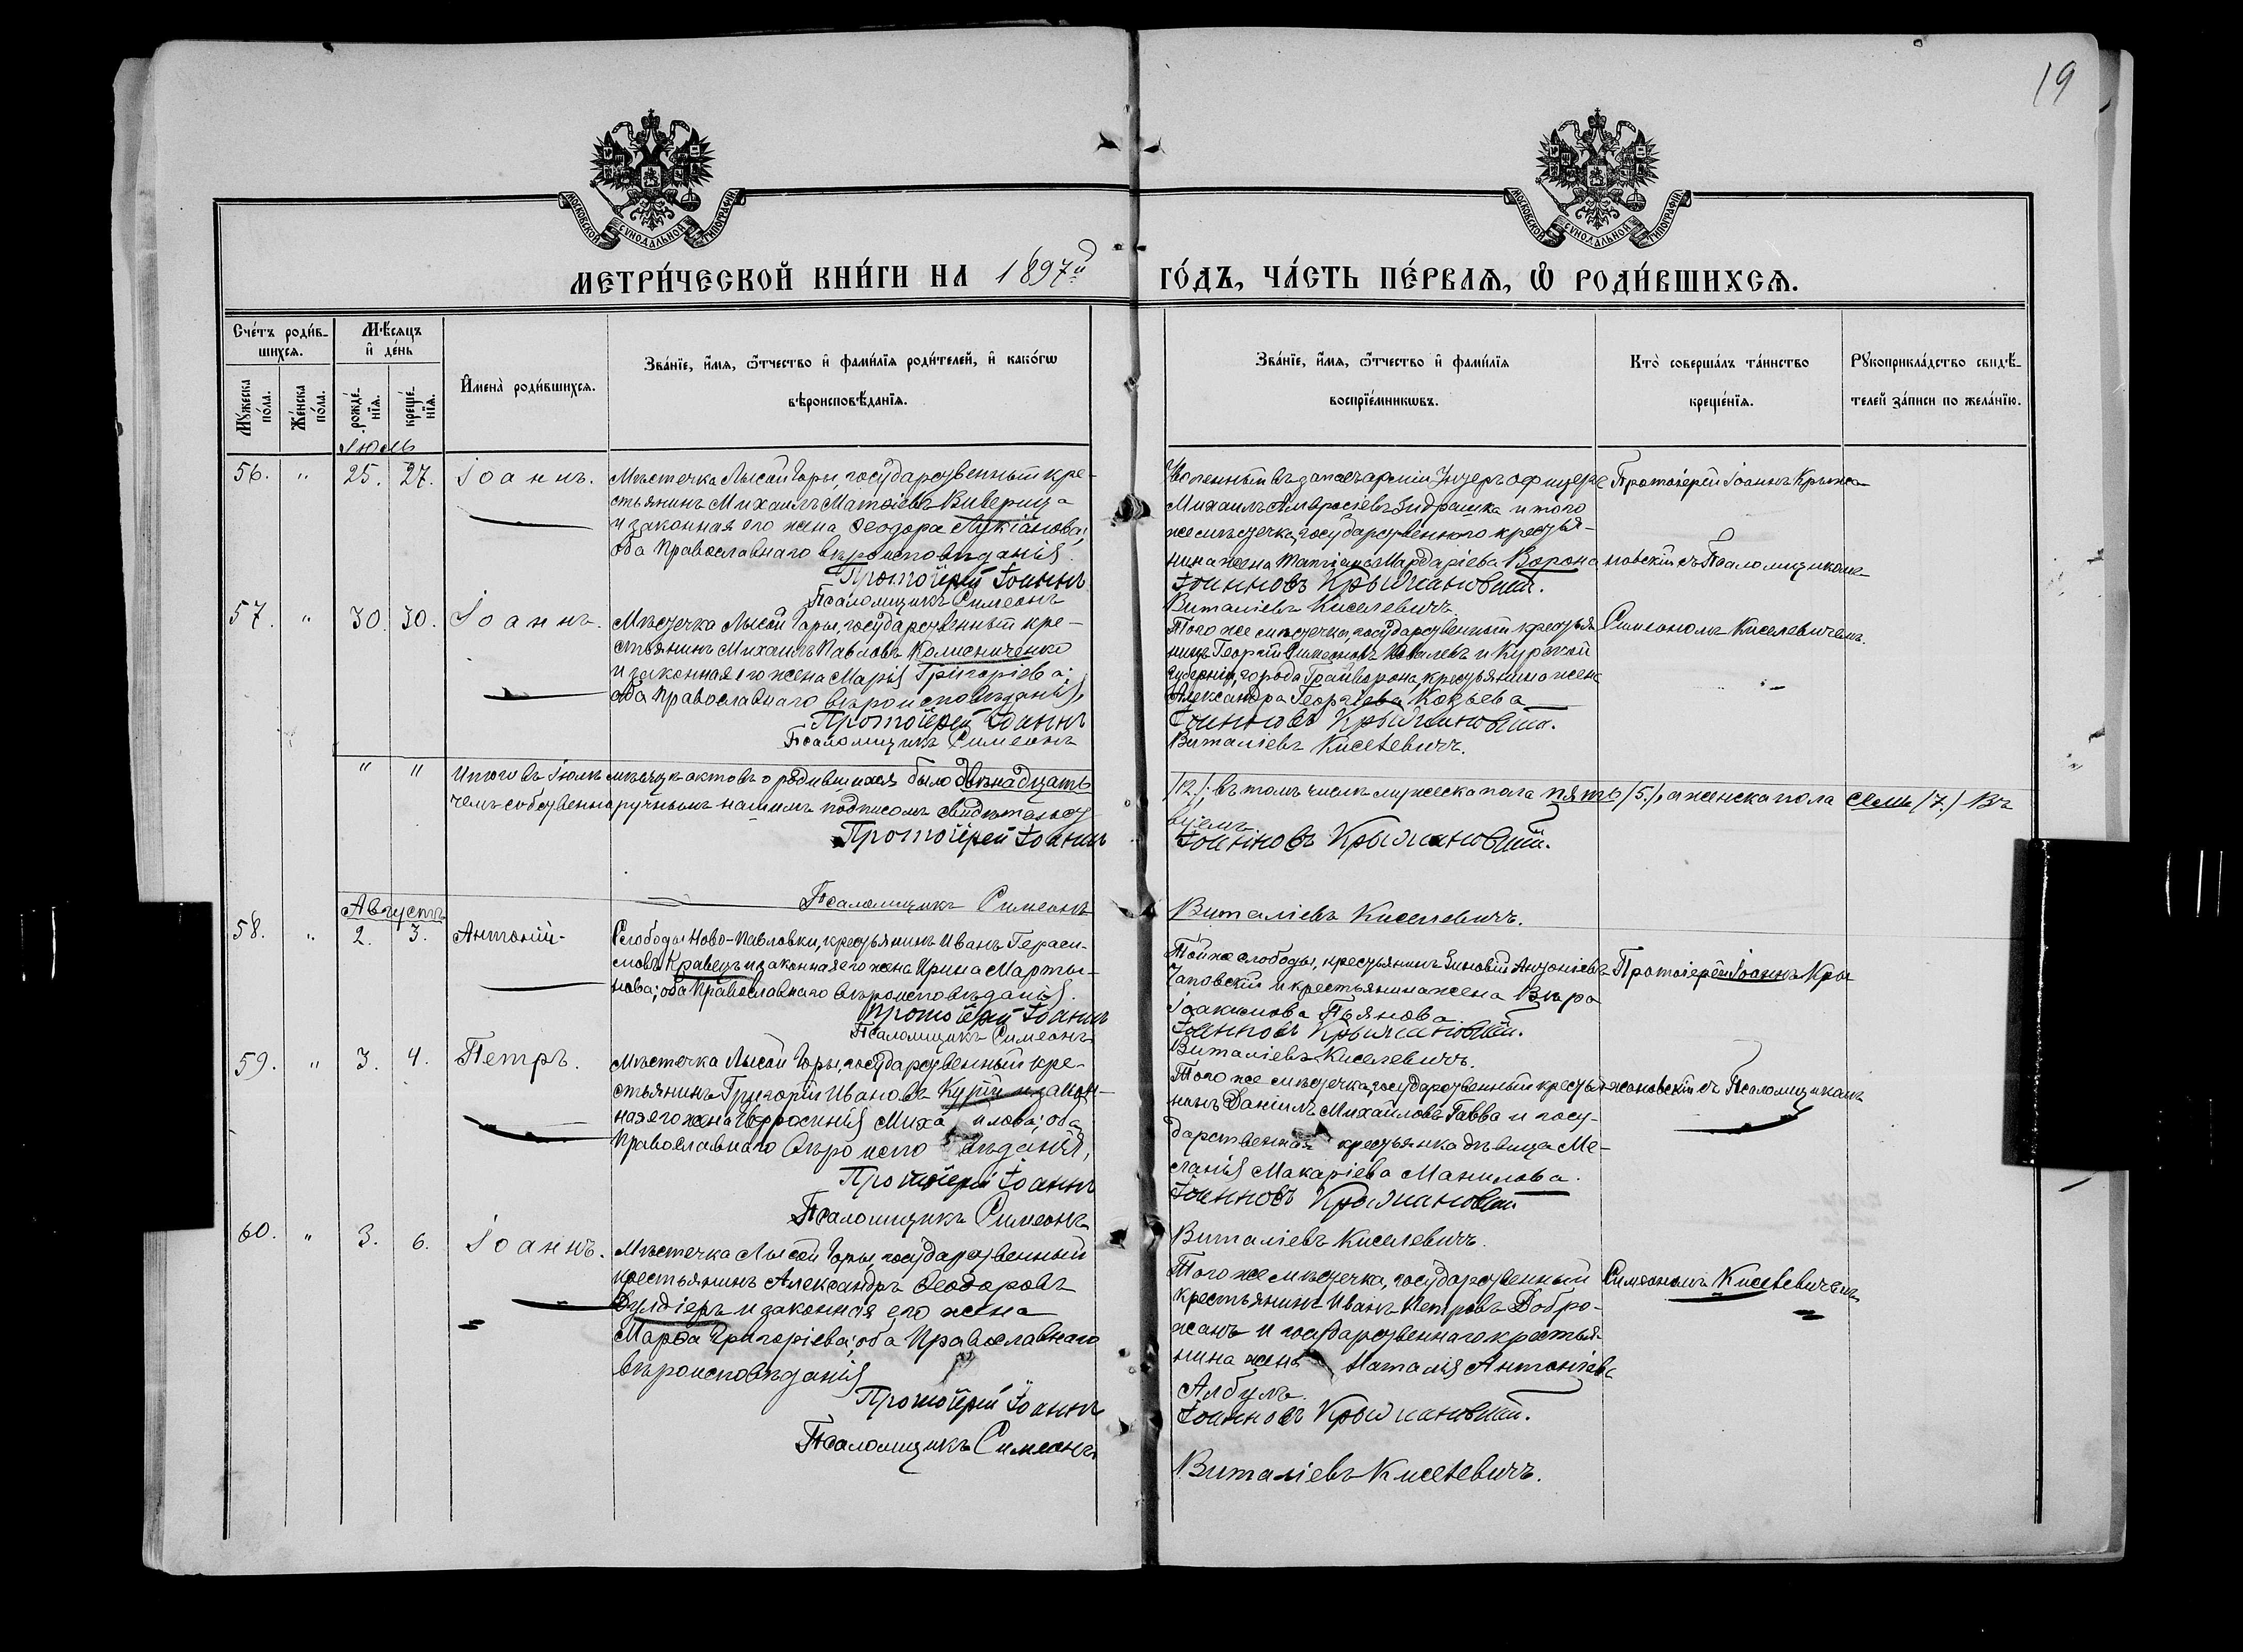 19
МОСКОВСКОЙ СУНОДАЛЬНОЙ ТИПОГРАФІИ
МОСКОВСКОЙ СУНОДАЛЬНОЙ ТИПОГРАФІИ
МЕТРИ́ЧЕСКОЙ КНИ́ГИ НА 1897й ГО́ДЪ, ЧА́СТЬ ПЕ́РВАѦ, Ѡ҆ РОДИ́ВШИХСѦ.
Сче́тъ роди́в-
шихсѧ.
Мѣ́сѧцъ
и҆ де́нь
Мꙋ́жеска по́ла.
Же́нска по́ла.
рожде́-
нїѧ.
креще́-
нїѧ.
И҆мена̀ роди́вшихсѧ.
Зва́нїе, и҆́мѧ, ѻ҆́тчество и҆ фами́лїѧ роди́телей, и҆ како́гѡ
вѣроисповѣ́данїѧ.
Зва́нїе, и҆́мѧ, ѻ҆́тчество и҆ фами́лїѧ
воспрїе́мникѡвъ.
Кто̀ соверша́лъ та́инство
креще́нїѧ.
Рꙋкоприкла́дство свидѣ́-
телей за́писи по жела́нїю.
Іюль
56. " 25. 27. Іоаннъ.
Мѣстечка Лысой Горы, государственный кре-
стьянинъ Михаилъ Матѳіевъ Виверица
и законная его жена Ѳеодора Лукіанова;
оба Православнаго вѣроисповѣданія.
Протоіерей Іоаннъ
Псаломщикъ Симеонъ
въ запасъ арміи Унтеръ офицеръ
Михаилъ Амвросіевъ и того
же мѣстечка, государственнаго крестья-
нина жена Татіана Мардаріева Ворона
Іоанновъ Крыжановскій.
Виталіевъ Киселевичъ.
Протоіерей Іоаннъ Крыжа-
новскій съ Псаломщикомъ
57. " 30. 30. Іоаннъ.
Мѣстечка Лысой Горы, государственный кре-
стьянинъ Михаилъ Павловъ Колисниченко
и законная его жена Марія Григоріева;
оба Православнаго вѣроисповѣданія,
Протоіерей Іоаннъ
Псаломщикъ Симеонъ
Того же мѣстечка, государственный крестья
нинъ Георгій Симеоновъ Ковалевъ и Курской
губерніи, города Грайворона, крестьянина жена
Александра Георгіева Козьева
Іоанновъ Крыжановскій.
Виталіевъ Киселевичъ.
Симеономъ Киселевичемъ
" " Итого въ Іюлѣ мѣсяцѣ актовъ о родившихся было двѣнадцать
/12/; въ томъ числѣ мужеска пола пять /5./, а женска пола семь /7./ Въ
чемъ собственноручнымъ нашимъ подписомъ свидѣтельст
вуемъ
Протоіерей Іоаннъ
Іоанновъ Крыжановскій.
Псаломщикъ Симеонъ
Виталіевъ Киселевичъ.
Августъ
58. " 2. 3. Антоній
Слободы Ново-Павловки, крестьянинъ Иванъ Гераси-
мовъ Кравецъ и законная его жена Ирина Марты-
нова; оба Православнаго вѣроисповѣданія.
Протоіерей Іоаннъ
Псаломщикъ Симеонъ
Той же слободы, крестьянинъ Зиновій Антоніевъ
Чаповскій и крестьянина жена Вѣра
Іоакимова Пьянова.
Іоанновъ Крыжановскій.
Виталіевъ Киселевичъ.
Протоіерей Іоаннъ Кры
59. " 3. 4. Петръ.
Мѣстечка Лысой Горы, государственный кре-
стьянинъ Григорій Ивановъ и закон-
ная его жена Евфросинія Михайлова; оба
Православнаго вѣроисповѣданія,
Протоіерей Іоаннъ
Псаломщикъ Симеонъ
Того же мѣстечка, государственный крестья
нинъ Даніилъ Михайловъ Гавва и госу-
дарственная крестьянка дѣвица Ме-
ланія Макаріева Манилова.
Іоанновъ Крыжановскій
Виталіевъ Киселевичъ.
жановскій съ Псаломщикомъ
60. " 3. 6. Іоаннъ.
Мѣстечка Лысой Горы, государственный
крестьянинъ Александръ Ѳеодоровъ
и законная его жена
Марѳа Григоріева; оба Православнаго
вѣроисповѣданія
Протоіерей Іоаннъ
Псаломщикъ Симеонъ
Того же мѣстечка, государственный
крестьянинъ Иванъ Петровъ Добро-
жанъ и государственнаго крестья-
нина жена Наталія Антоніева
Албулъ.
Іоанновъ Крыжановскій.
Виталіевъ Киселевичъ.
Симеономъ Киселевичемъ